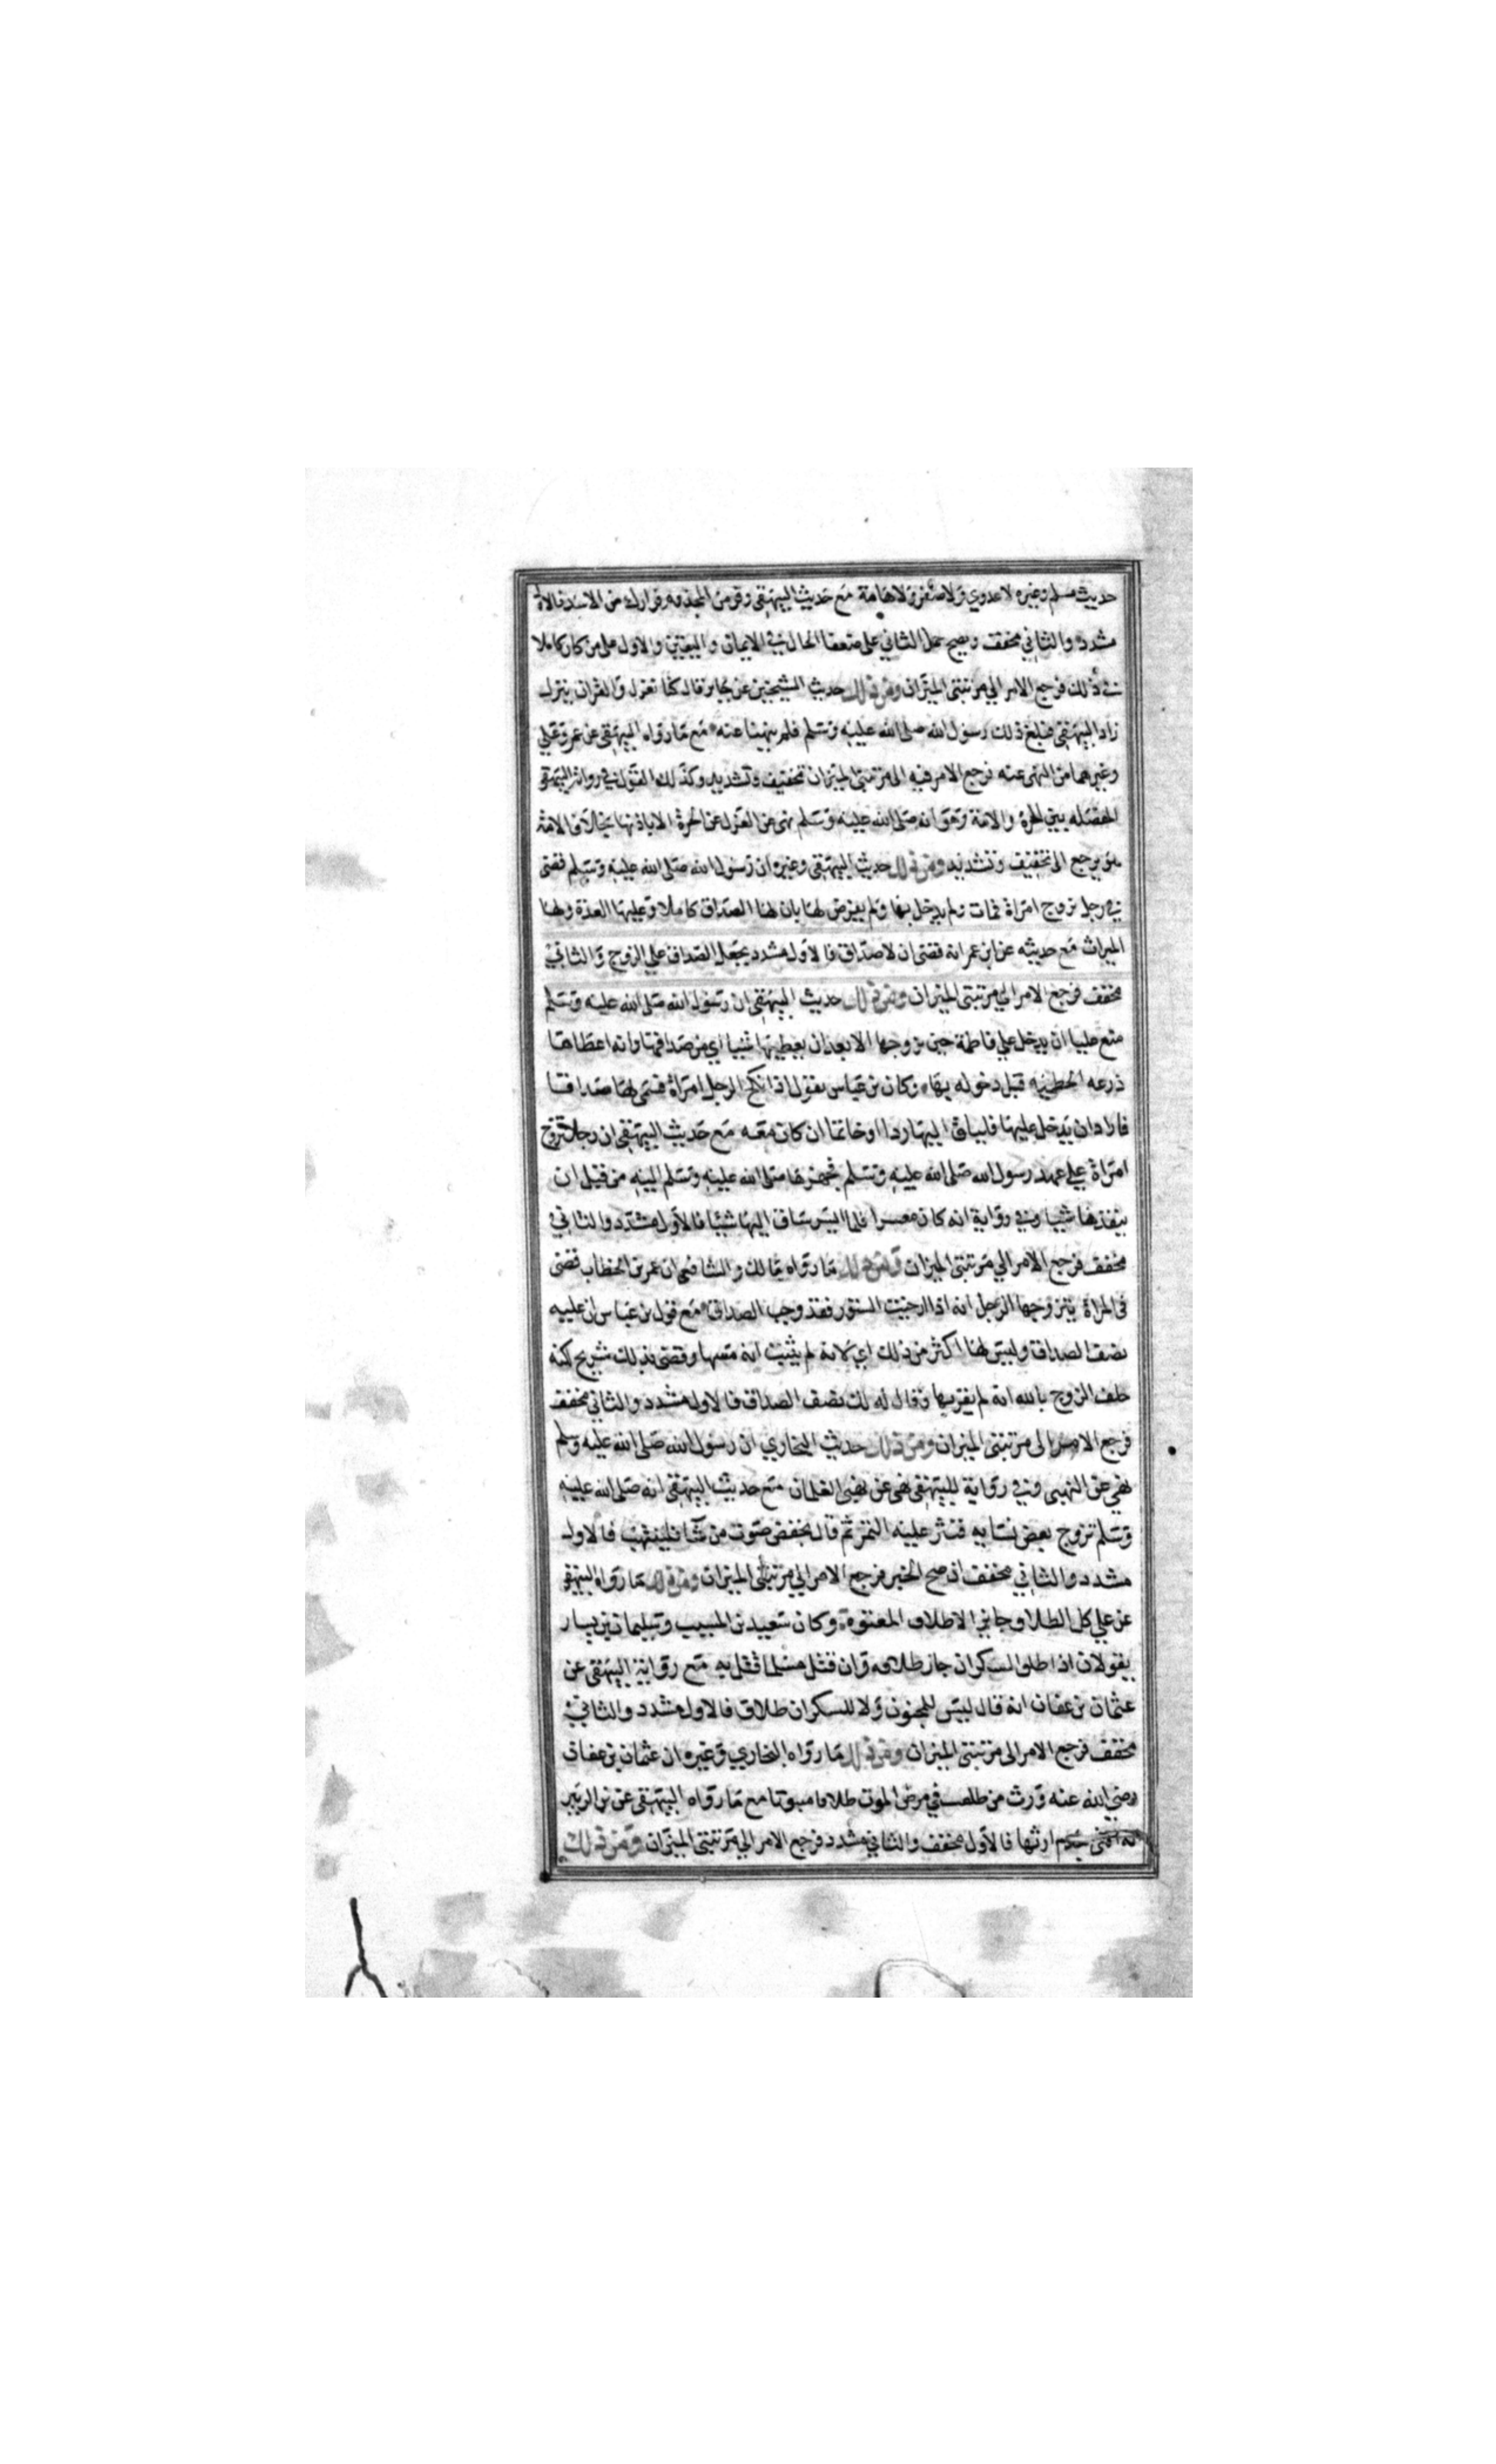 حديث مسلم وغيره لا عدوي ولا صفر ولا هامة مع حديث البيهقي وفر من المجذوم فرارك من الاسد فالاول
مشدد والثاني مخفف ويصح حمل الثاني على ضعفا الحال في الايمان واليقين والاول على من كان كاملا
في ذلك فرجع الامر الي مرتبتي الميزان ومن ذلك حديث الشيخين عن جابر قال كنا نعزل والقران ينزل
زاد البيهقي فبلغ ذلك رسول الله صلى الله عليه وسلم فلم ينهنا عنه مع ما رواه البيهقي عن عمر وعلي
وغيرهما من النهي عنه فرجع الامر فيه الى مرتبتي الميزان تخفيف وتشديد وكذلك القول في رواية البيهقي
المفصله بين الحرة والامة وهو انه صلى الله عليه وسلم نهى عن العزل عن الحرة الا باذنها بخلاف الامة
فهو يرجع الى تخفيف وتشديد ومن ذلك حديث البيهقي وغيره ان رسول الله صلى الله عليه وسلم قضى
في رجل تزوج امراة فمات ولم يدخل بها ولم يفرض لها بان لها الصداق كاملا وعليها العدة ولها
الميراث مع حديثه عن ابن عمر انه قضى ان لا صداق فالاول مشدد بجعل الصداق علي الزوج والثاني
مخفف فرجع الامر الي مرتبتي الميزان ومن ذلك حديث البيهقي ان رسول الله صلى الله عليه وسلم
منع عليا ان يدخل علي فاطمة حين تزوجها الا بعد ان يعطيها شيا اي من صداقها وانه اعطاها
درعه الحطميه قبل دخوله بها وكان بن عباس يقول اذا نكح الرجل امراة فسمى لها صداقا
فاراد ان يدخل عليها فليلق اليها ردا او خاتما ان كان معه مع حديث البيهقي ان رجلا تزوج
امراة علي عهد رسول الله صلى الله عليه وسلم فجهزها صلى الله عليه وسلم اليه من قبل ان
ينقدها شيا وفي رواية انه كان معسرا فلما ايسر ساق اليها شيئا فالاول مشدد والثاني
مخفف فرجع الامر الي مرتبتي الميزان ومن ذلك ما رواه مالك والشافعي ان عمر بن الخطاب قضى
في المراة يتزوجها الرجل انه اذا ارخيت الستور فقد وجب الصداق مع قول بن عباس ان عليه
نصف الصداق وليس لها اكثر من ذلك اي لانه لم يثبت انه مسها وقضى بذلك شريح لكنه
حلف الزوج بالله انه لم يقربها وقال له لك نصف الصداق فالاول مشدد والثاني مخفف
فرجع الامر الى مرتبتي الميزان ومن ذلك حديث البخاري ان رسول الله صلى الله عليه وسلم
نهي عن النهبى وفي رواية للبيهقي نهى عن نهبى الغلمان مع حديث البيهقي انه صلى الله عليه
وسلم تزوج بعض نسايه فنثر عليه التمر ثم قال بخفض صوت من شا فلينتهب فالاول
مشدد والثاني مخفف ان صح الخبر فرجع الامر الي مرتبتي الميزان ومن ذلك ما رواه البيهقي
عن علي كل الطلاق جايز الا طلاق المعتوه وكان سعيد بن المسيب وسليمان بن يسار
يقولان اذا طلق السكران جاز طلاقه وان قتل مسلما قتل به مع رواية البيهقي عن
عثمان بن عفان انه قال ليس للمجنون ولا للسكران طلاق فالاول مشدد والثاني
مخفف فرجع الامر الى مرتبتي الميزان ومن ذلك ما رواه البخاري وغيره ان عثمان بن عفان
رضي الله عنه ورث من طلقت في مرض الموت طلاقا مبتوتا مع ما رواه البيهقي عن بن الزبير
بعدم ارثها فالاول مخفف والثاني مشدد فرجع الامر الي مرتبتي الميزان ومن ذلك